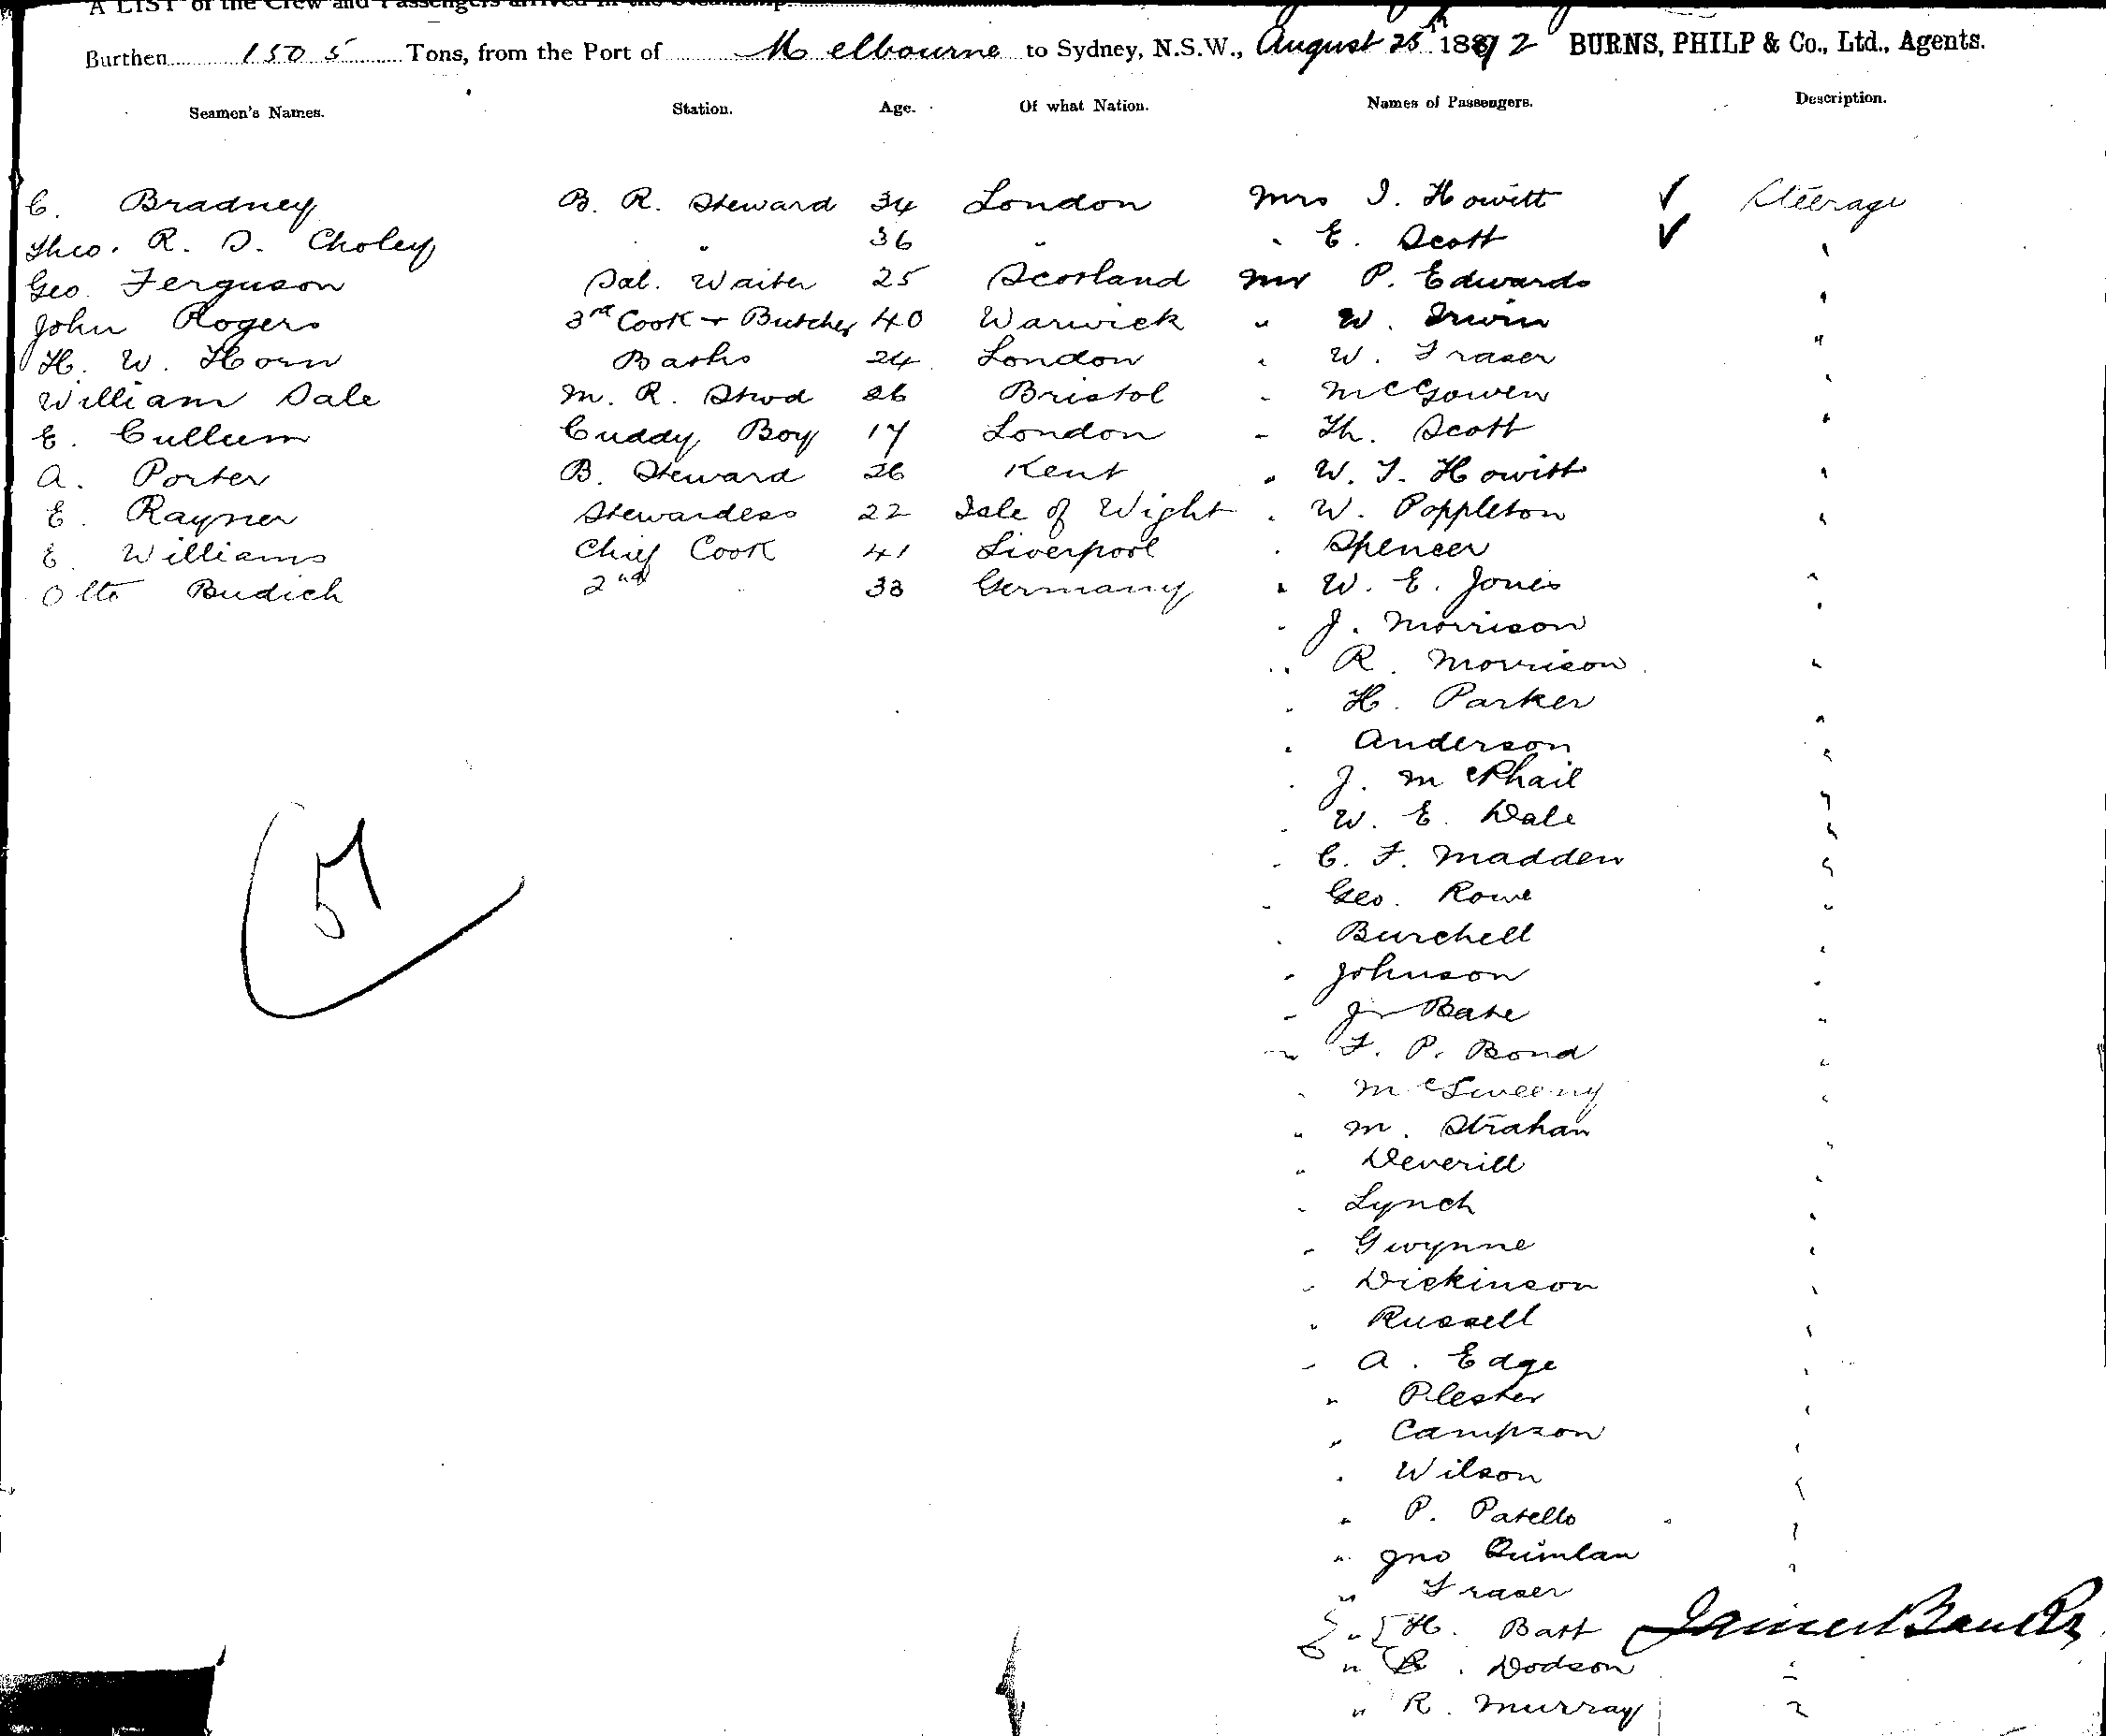 A LIST of the Crew and Passengers arrived in the Steamship
Burthen 1505 Tons, from the Port of Melbourne to Sydney, N.S.W., August 25th 1892 BURNS, PHILP & Co., Ltd., Agents.
Seamen's Names. Station. Age. Of what Nation. Names of Passengers. Description.
C. Bradney B. R. Steward 34 London Mrs I. Howitt ✓ Steerage
Theo. R. D. Choley " 36 " " E. Scott ✓ "
Geo. Ferguson Sal. Waiter 25 Scotland Mr P. Edwards "
John Rogers 3rd Cook + Butcher 40 Warwick " W. Irwin "
H. W. Horn Baths 24 London " W. Fraser "
William Sale M. R. Stwd 26 Bristol " McGowen "
E. Cullum Cuddy Boy 17 London " Th. Scott "
A. Porter B. Steward 26 Kent " W. T. Howitt "
E. Rayner Stewardess 22 Isle of Wight " W. Poppleton "
E. Williams Chief Cook 41 Liverpool " Spencer
Otto Budich 2nd " 33 Germany " W. E. Jones "
" J. Morrison "
" R. Morrison "
" H. Parker "
" Anderson "
" J. McPhail "
" W. E. Dale "
" C. F. Madden "
" Geo. Rowe "
" Burchell "
" Johnson "
" Jr Bate "
" F. P. Bond "
" McSweeny "
" M. Strahan "
" Deverill "
" Lynch "
" Gwynne "
" Dickinson "
" Russell "
" A. Edge "
" Plester "
" Campson "
" Wilson "
" P. Patello "
" Jno Quinlan "
" Fraser
" H. Batt James Banks
" Dodson "
" R. Murray "
51